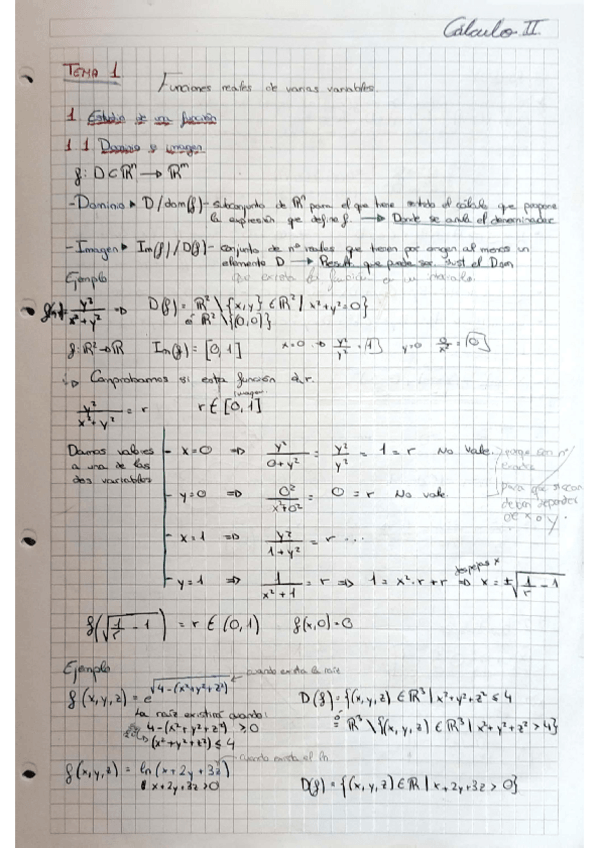 Cálculo II.
TEMA 1
Funciones reales de varias variables.
1. Estudio de una función
1.1 Dominio e imagen
f: D⊂ℝⁿ → ℝᵐ
- Dominio ▸ D/dom(f) - subconjunto de ℝⁿ para el que tiene sentido el cálculo que propone
la expresión que define f. → Donde se anula el denominador
- Imagen ▸ Im(f)/D(f) - conjunto de nº reales que tienen por origen al menos un
elemento D → Result. que puede ser. sust el Dom
Ejemplo que exista la función en un
= y²/(x²+y²) ⇒ D(f) = ℝ² \ {x,y) ∈ ℝ² | x²+y²=0}
ó ℝ² \ {(0,0)}
f: ℝ² → ℝ Im(f) = [0,1] x=0 ⇒ y²/y² = {1} y=0 0/x² = {0}
Comprobamos si esta función es r.
y²/(x²+y²) = r r ∈ [0,1] imagen
Damos valores
a una de las
dos variables
- x=0 ⇒ y²/(0+y²) = y²/y² = 1 = r No vale.
- y=0 ⇒ 0²/(x²+0²) = 0 = r No vale
porque son nº
para que
deben depender
de x o y.
- x=1 ⇒ y²/(1+y²) = r ...
- y=1 ⇒ 1/(x²+1) = r ⇒ 1 = x²·r + r ⇒ x = ±√(1/r - 1)
despejas x
f(√(1/r - 1)) = r ∈ (0,1) f(x,0)=0
Ejemplo
f(x,y,z) = e^√(4-(x²+y²+z²)) cuando exista la raíz D(f) = {(x,y,z) ∈ ℝ³ | x²+y²+z² ≤ 4
La raíz existirá cuando: ó = ℝ³ \ {(x,y,z) ∈ ℝ³ | x²+y²+z² > 4}
4-(x²+y²+z²) ≥ 0
(x²+y²+z²) ≤ 4
f(x,y,z) = ln(x+2y+3z) cuando exista el ln
x+2y+3z>0 D(f) = {(x,y,z) ∈ ℝ | x+2y+3z > 0}